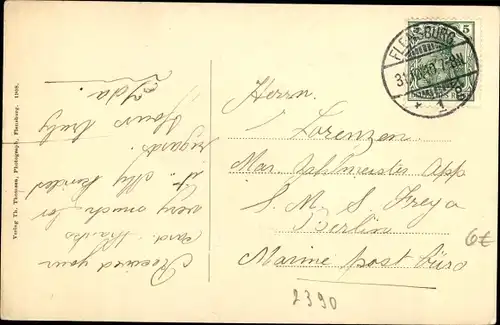 Received your
card. Thanks
very much for
it. My kindest
regards.
Yours truly
Ida.
Verlag Th. Thomsen, Photograph, Flensburg. 1908.
FLENSBURG
7-8N
* 1
5
Herrn.
Lorenzen
Mar. Zahlmeister App
S. M. S. Freya
Berlin
Marine post büro
6€
2390